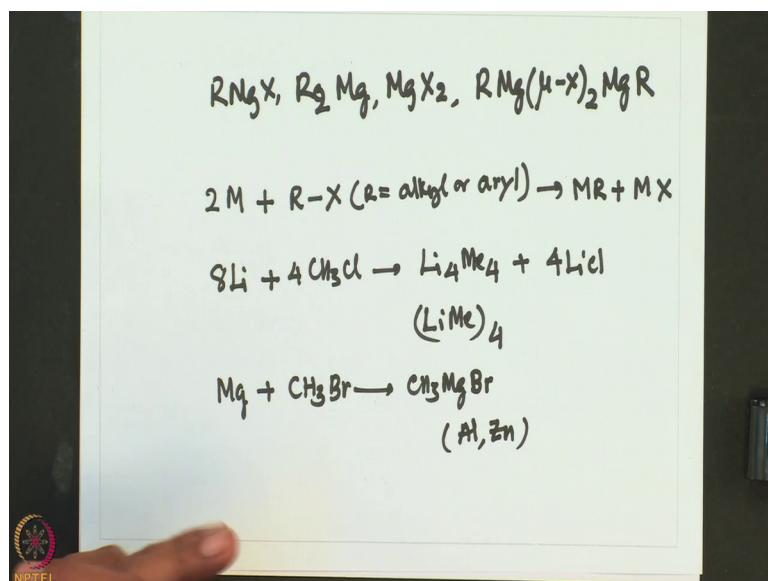 RMgX, R2Mg, MgX2, RMg(μ-X)2MgR
2M + R-X (R= alkyl or aryl) → MR + MX
8Li + 4CH3Cl → Li4Me4 + 4LiCl
(LiMe)4
Mg + CH3Br → CH3MgBr
(Al, Zn)
NPTEL